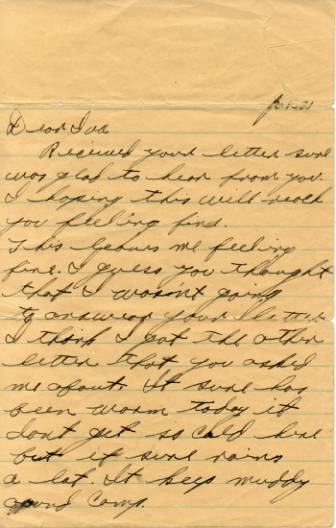 Dear Iva
Received your letter sure
was glad to hear from you
I hoping this will reach
you feeling fine.
This leaves me feeling
fine. I guess you thought
that I wasn't going
to answear your letter
I think I got the other
letter that you asked
me about. It sure has
been warm today it
dont get so cold here
but it sure rains
a lot. It keeps muddy
camp.